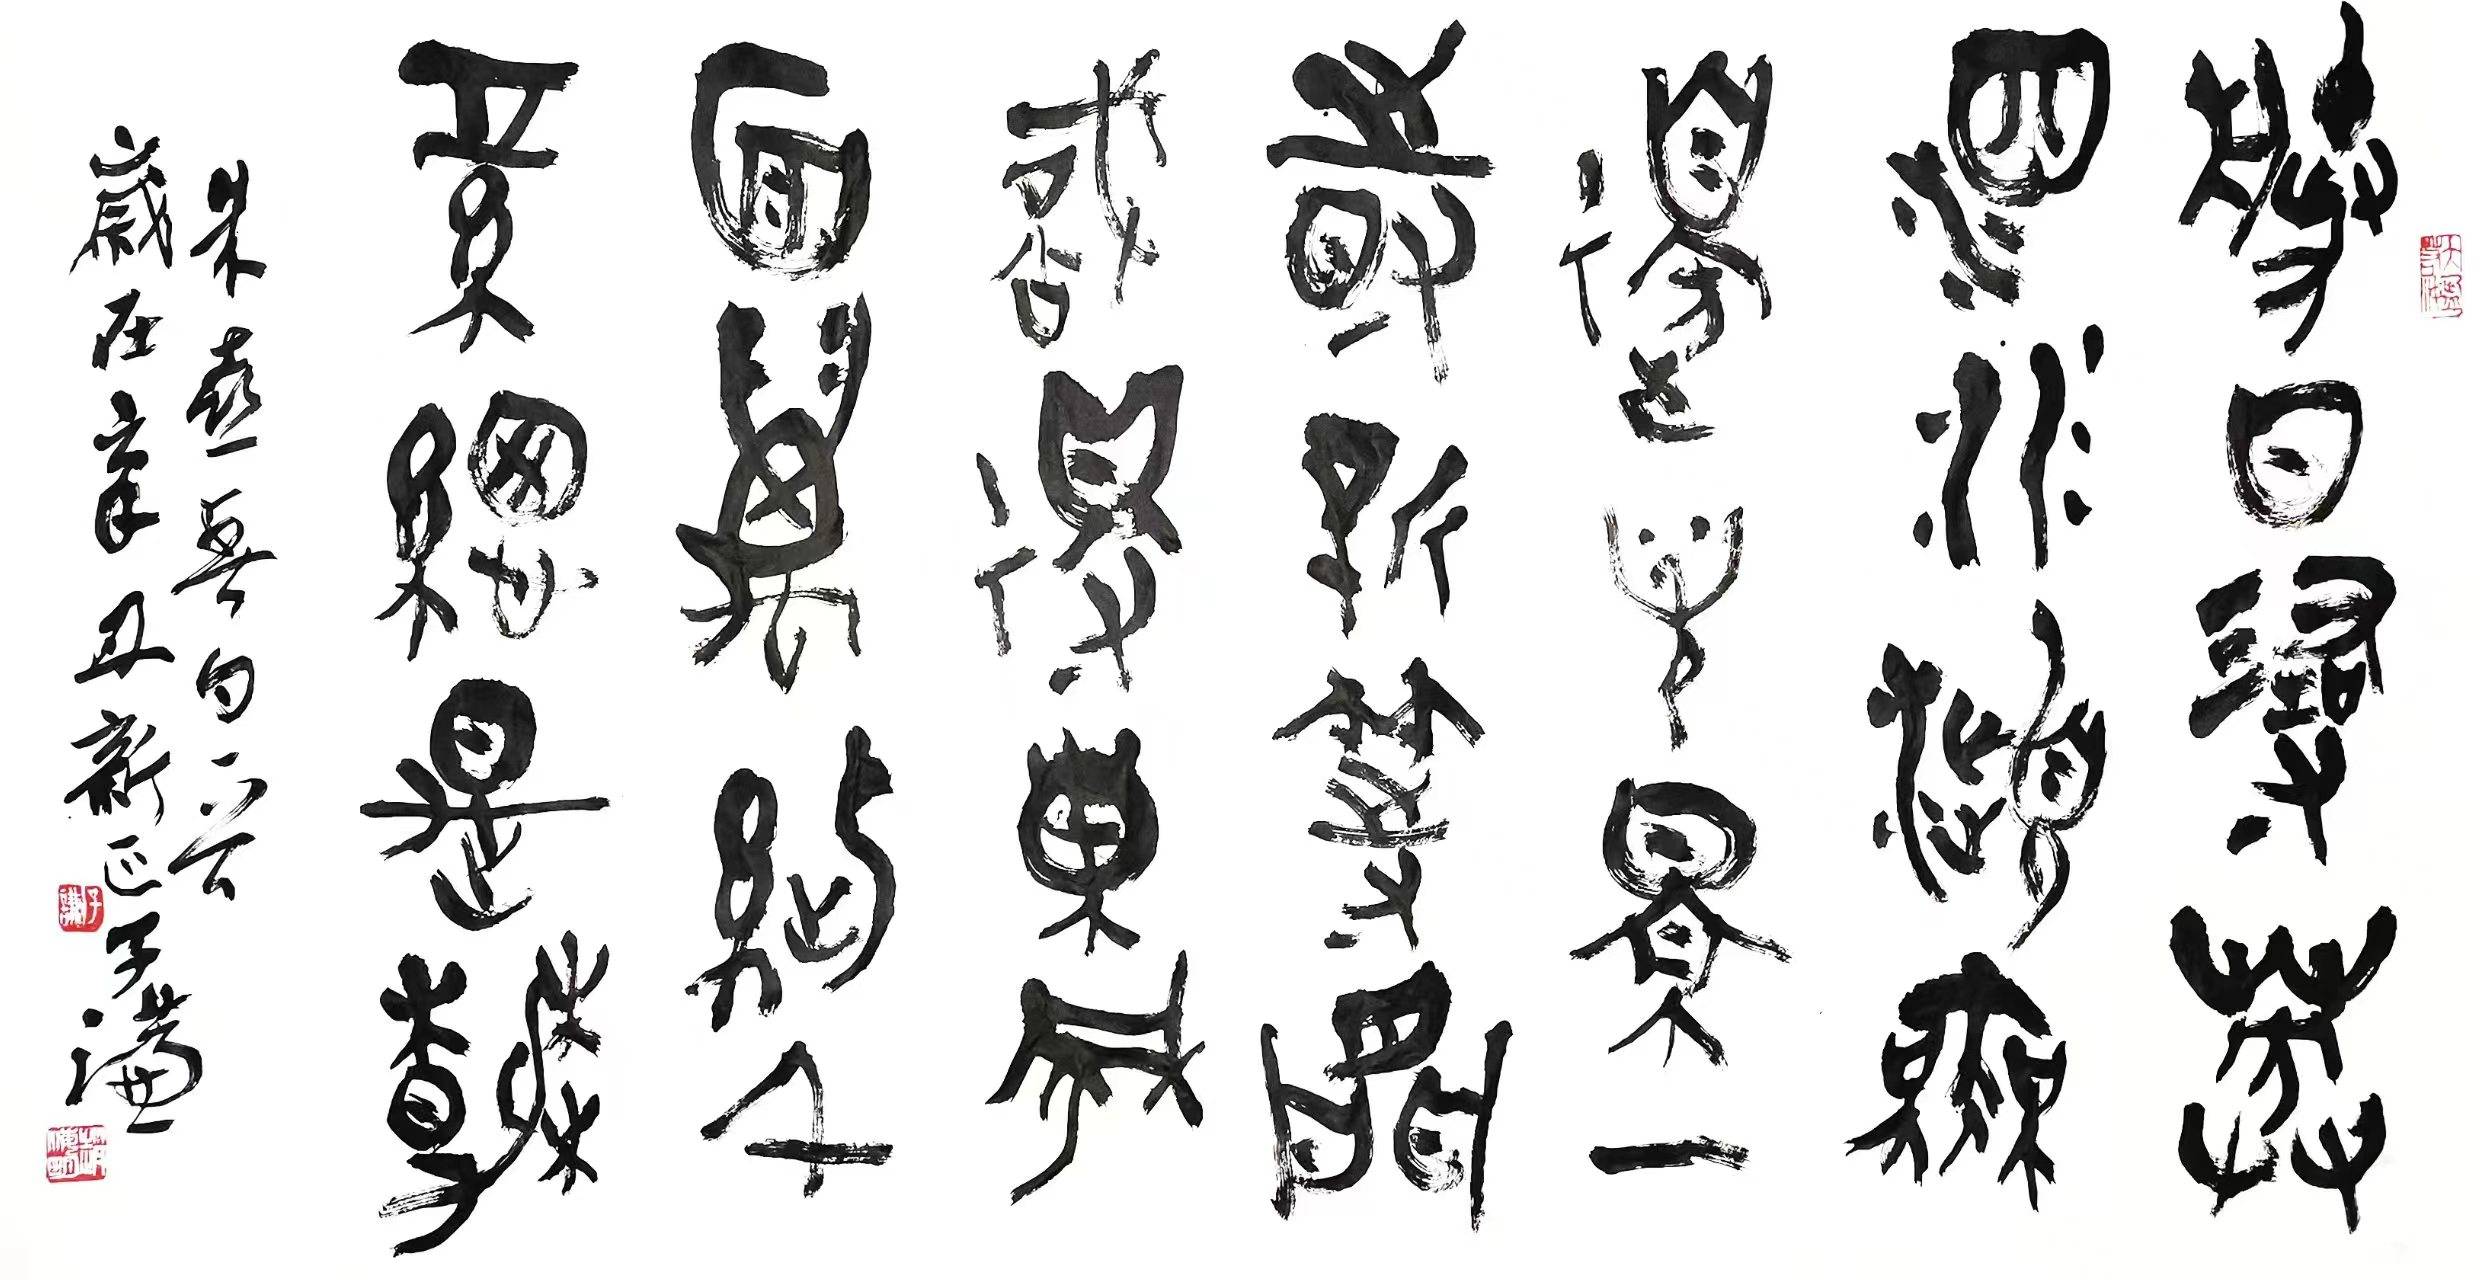 勝日尋芳
泗水濱無
邊光景一
時新等閒
識得東風
面萬紫千
紅總是春
朱熹春日一首
歲在辛丑新正子謙
子謙